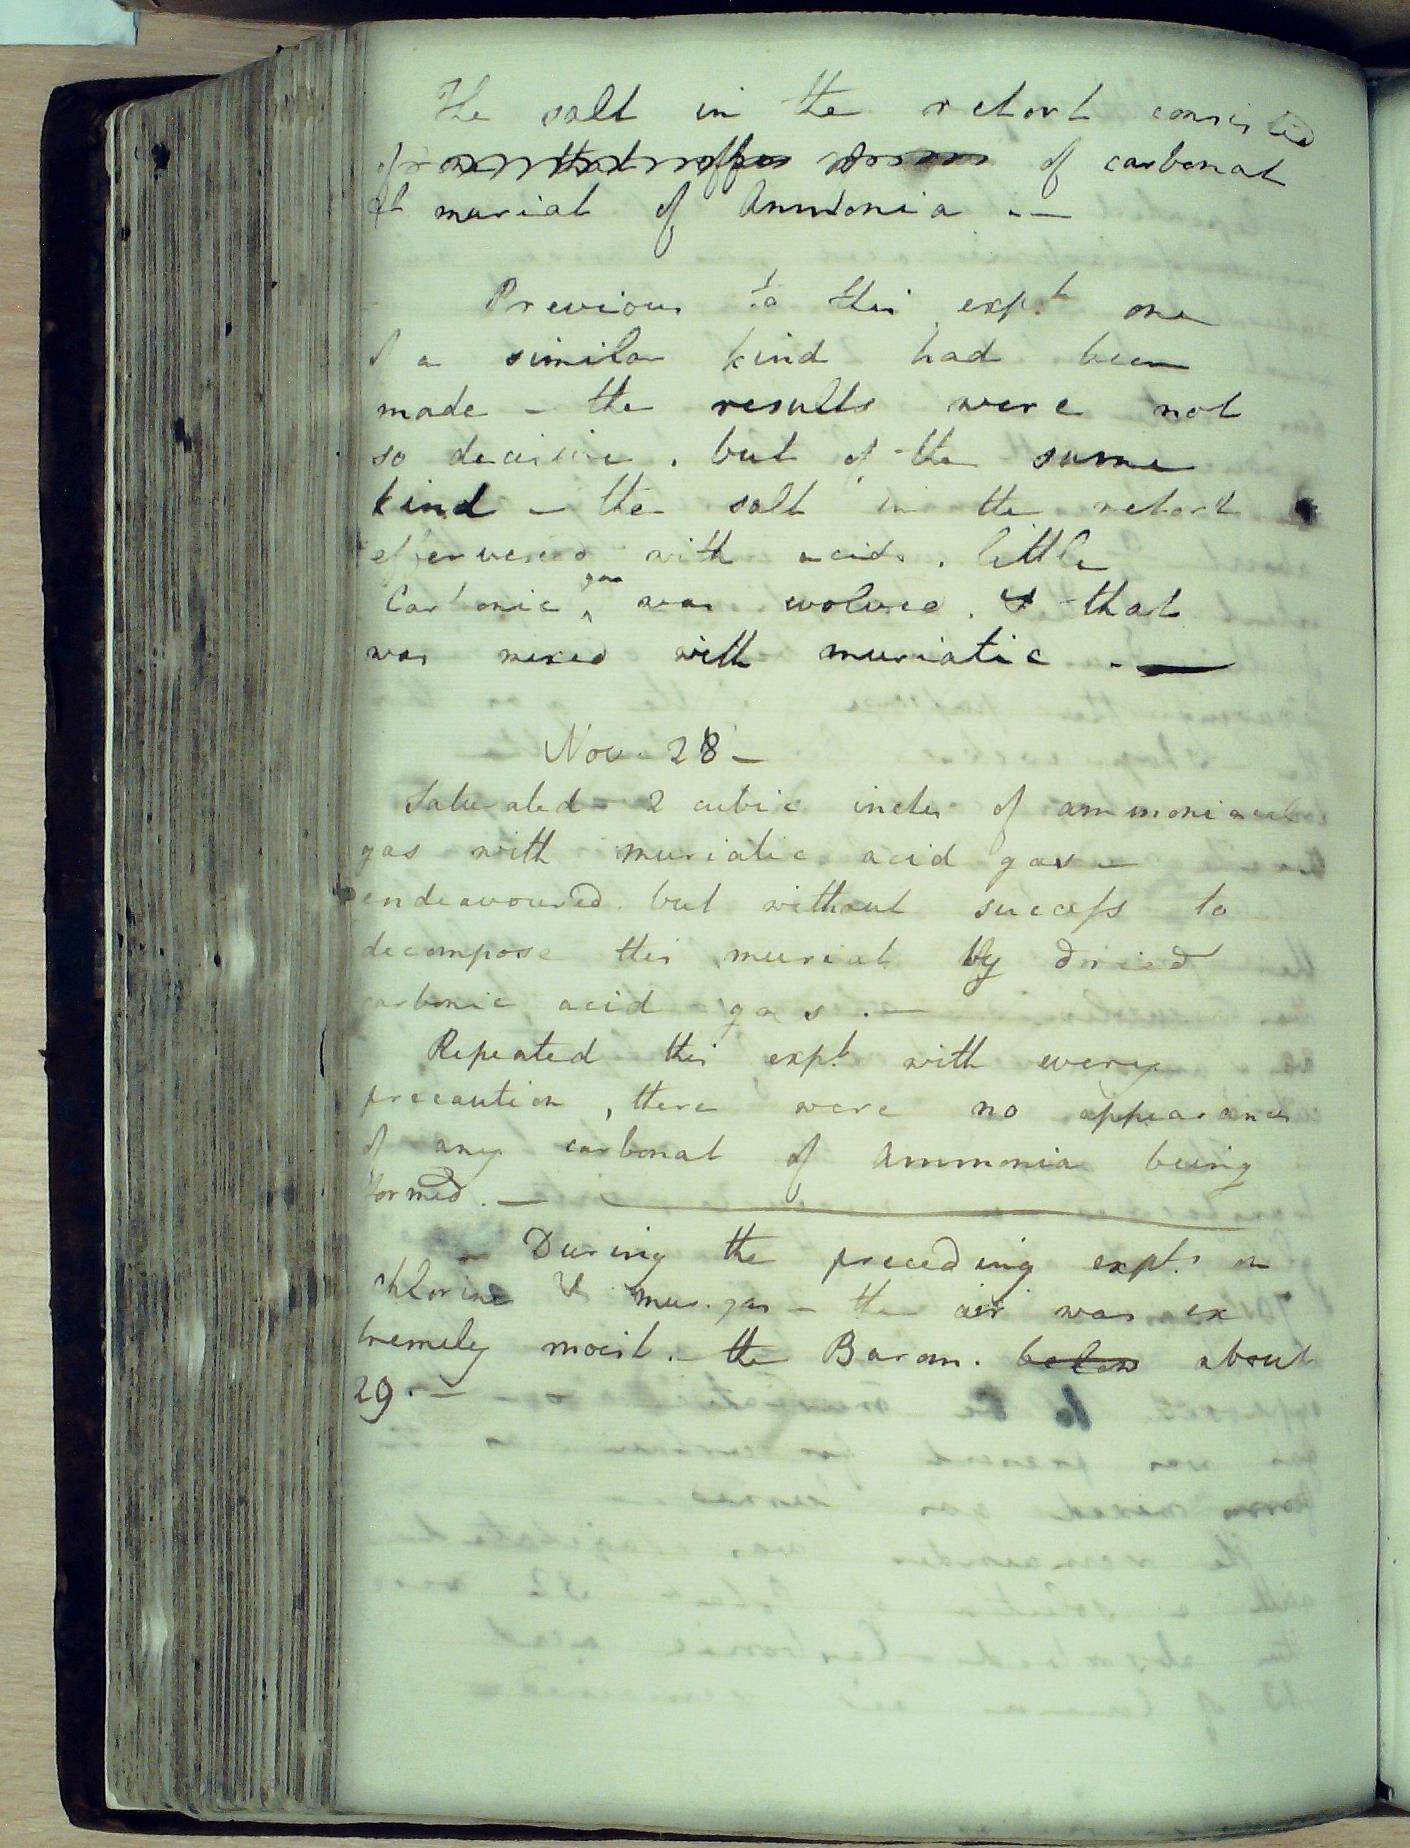 The salt in the retort consisted
of of carbonat
et muriat of Ammonia . —
Previous to this expt. one
of a similar kind had been
made – the results were not
so decisive, but of the same
kind – the salt in the retort
effervesced with acids. little
Carbonic gas was evolved. & that
was mixed with muriatic . —
Nov. 28 –
Saturated 2 cubic inches of ammoniacal
gas with muriatic acid gas –
endeavoured but without success to
decompose this muriat by dried
carbonic acid gas . —
Repeated this expt. with every
precaution, there were no appearances
of any carbonat of Ammonia being
formed. —
– During the preceding expts. on
chlorine & mur. gas – the air was ex
tremely moist. – the Barom. below about
29. –